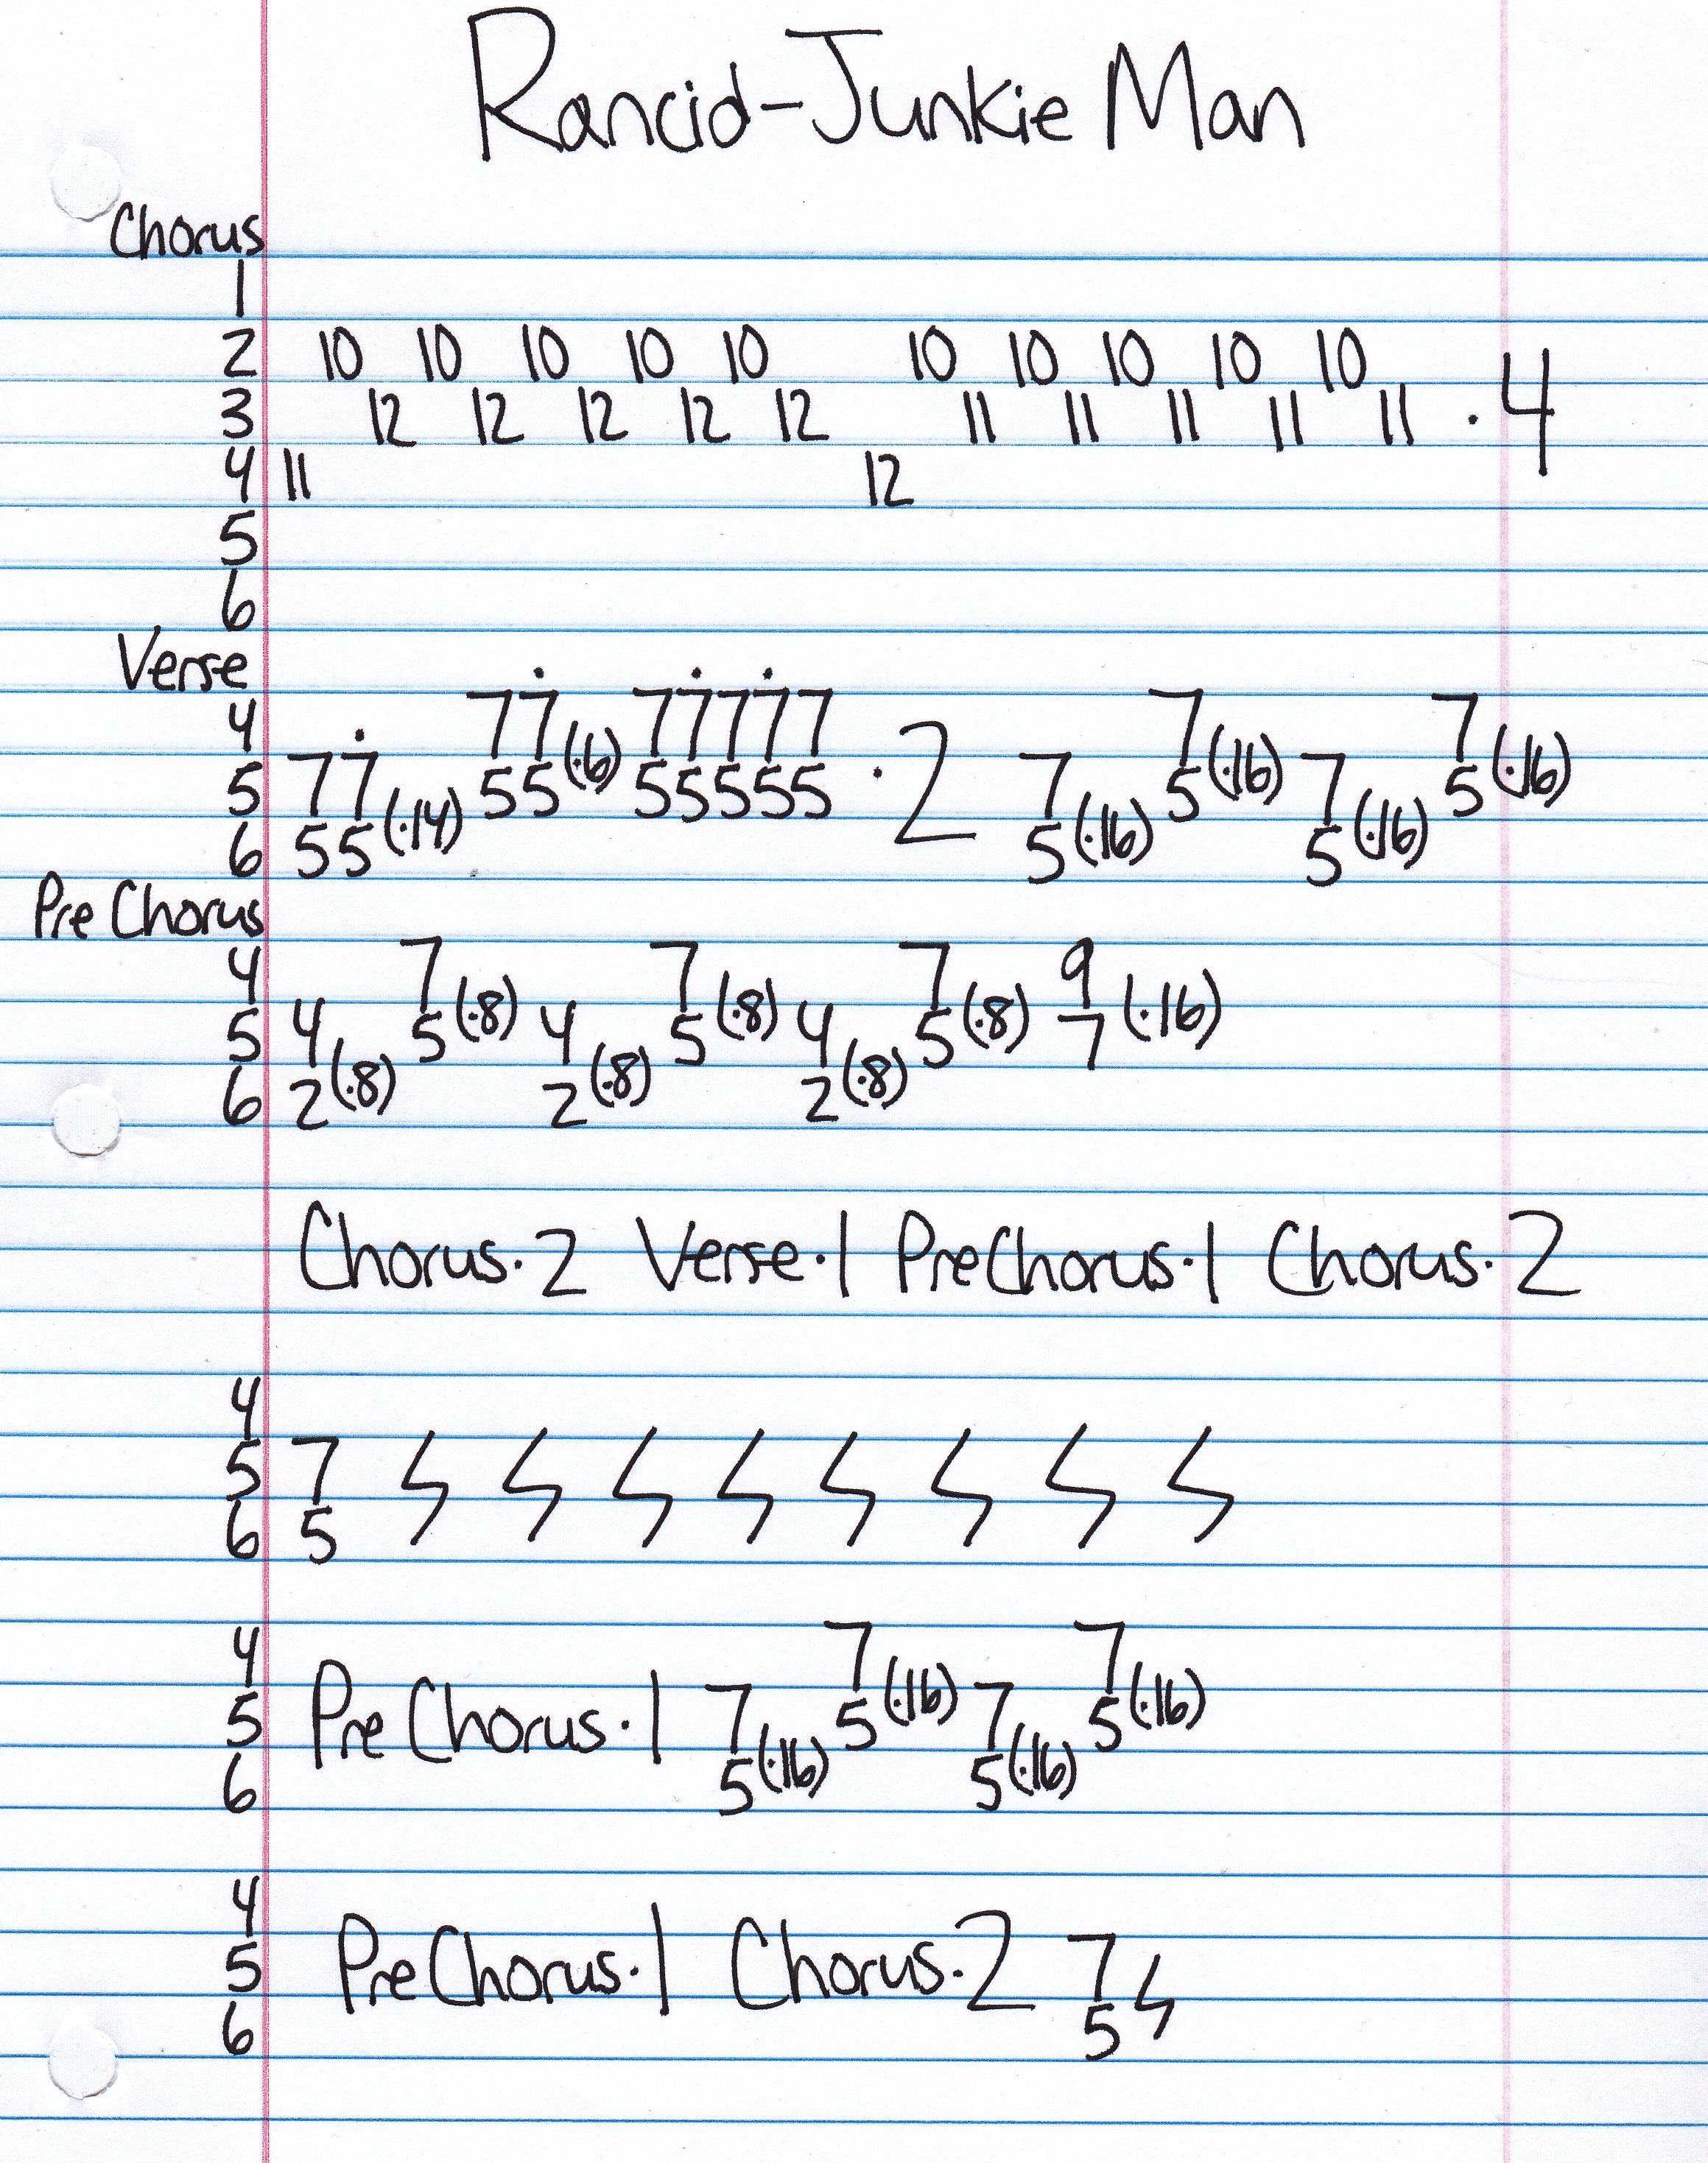 Rancid-Junkie Man
Chorus
1
2 10 10 10 10 10 10 10 10 10 10
3 12 12 12 12 12 11 11 11 11 11 · 4
4 11 12
5
6
Verse
4 7 7̇ 7 7̇ 7 7̇ 7 7 7
5 7 7̇ 5 5 (·6) 5 5 5 5 5 · 2 7 5 (·16) 7 5 (·16)
6 5 5 (·14) 5 (·16) 5 (·16)
Pre Chorus
4 7 7 7 9
5 4 5 (·8) 4 5 (·8) 4 5 (·8) 7 (·16)
6 2 (·8) 2 (·8) 2 (·8)
Chorus·2 Verse·1 PreChorus·1 Chorus·2
4
5 7
6 5
4 7 7
5 Pre Chorus·1 7 5 (·16) 7 5 (·16)
6 5 (·16) 5 (·16)
4
5 Pre Chorus·1 Chorus·2 7
6 5